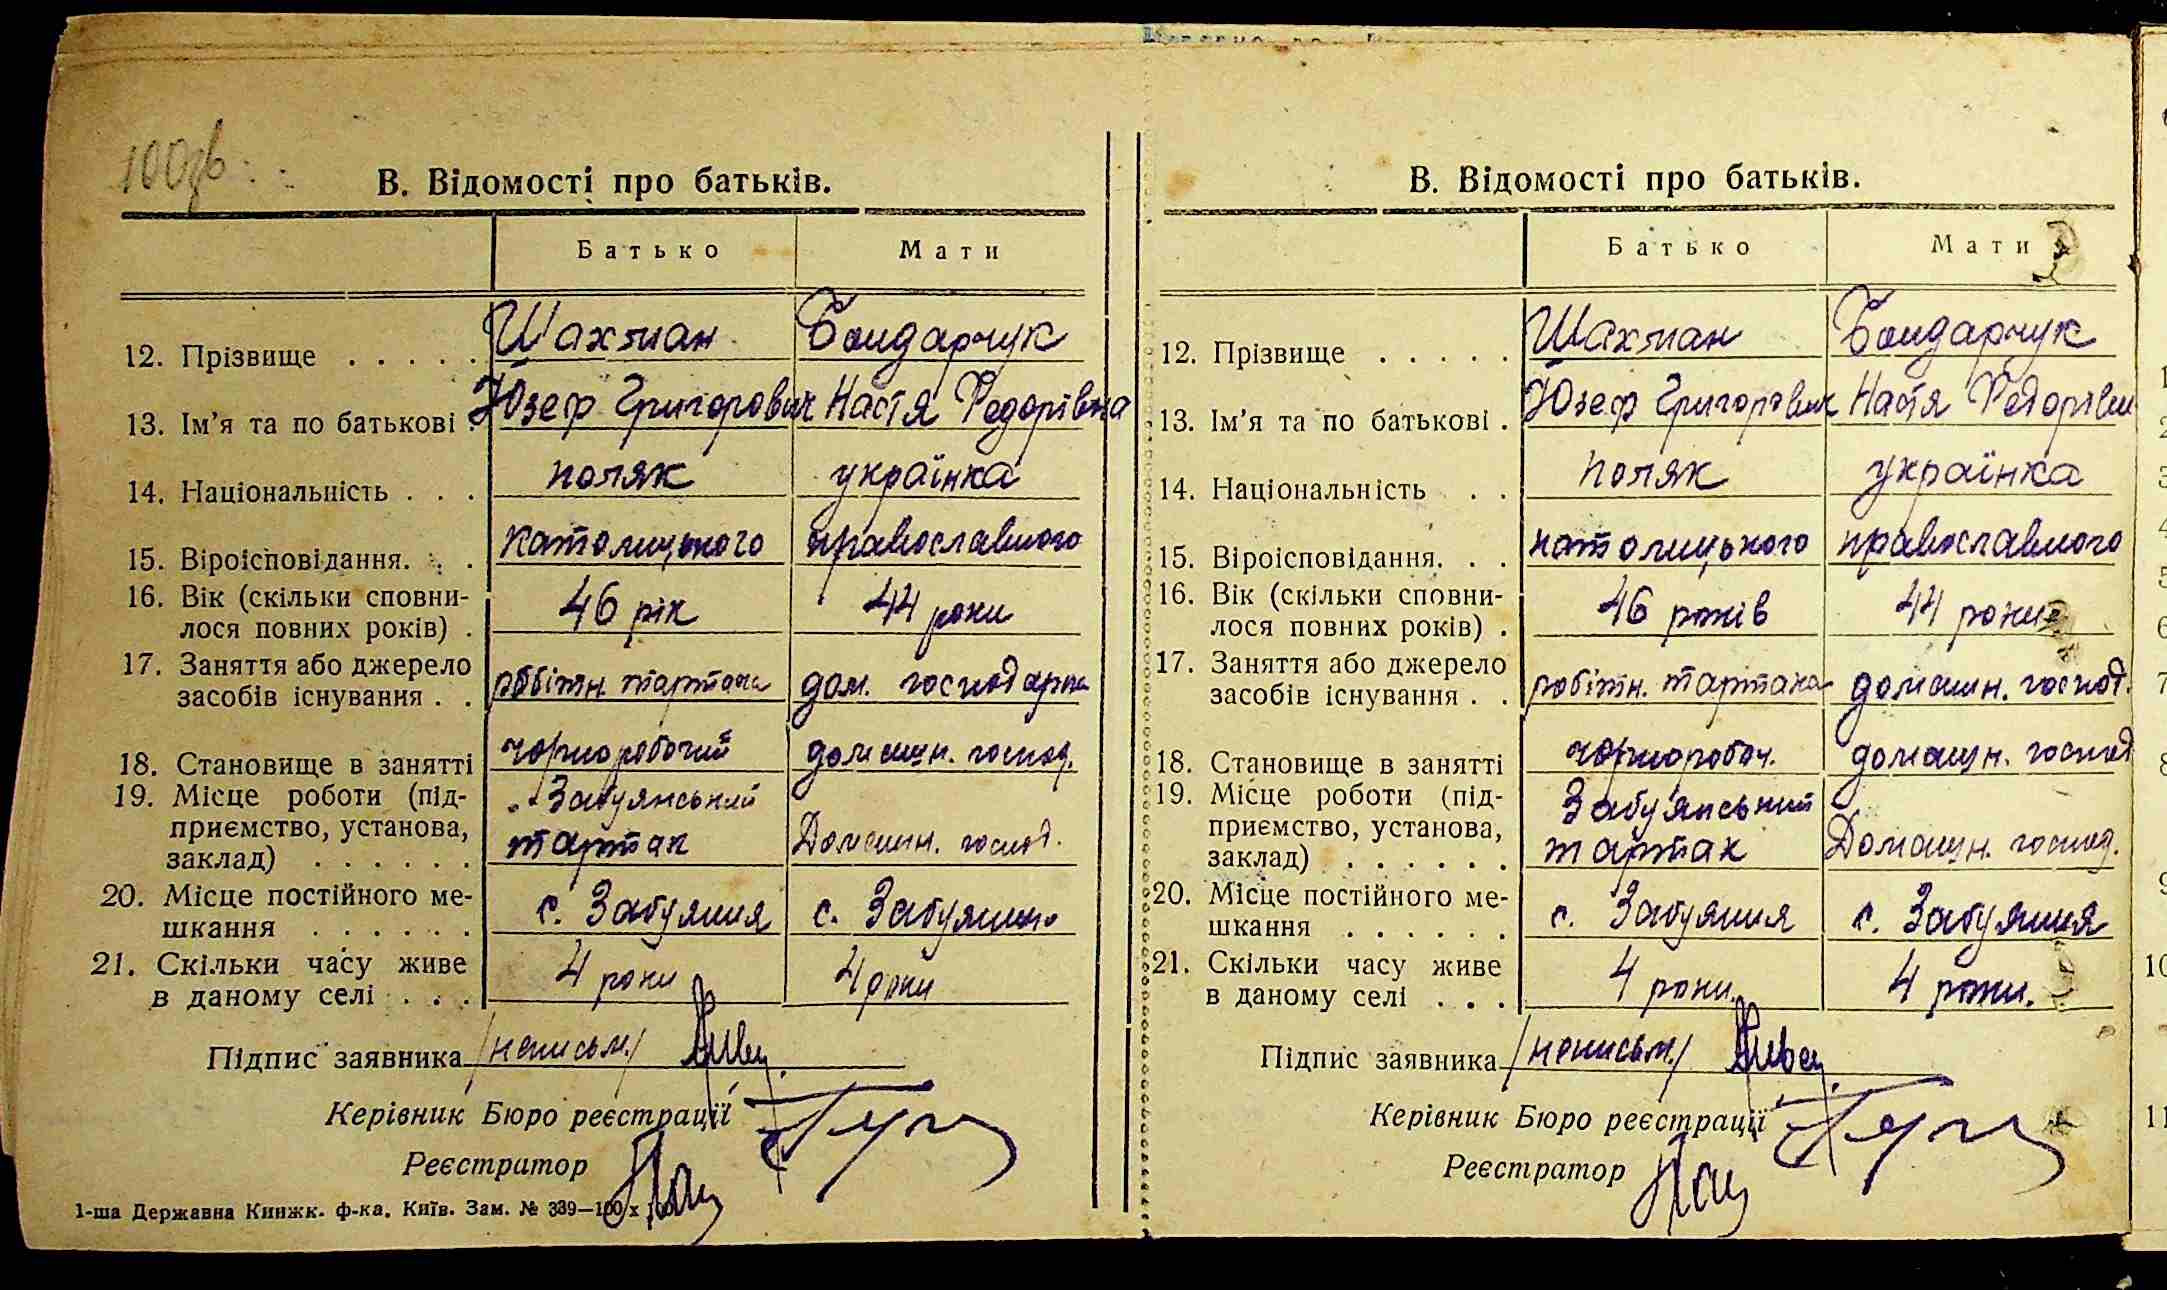 В. Відомості про батьків.
Батько Мати
12. Прізвище . . . . . Шахман Бондарчук
13. Ім'я та по батькові . Юзеф Григорович Настя Федорівна
14. Національність . . . поляк українка
15. Віроісповідання. . . католицького православного
16. Вік (скільки сповни-
лося повних років) . 46 рік 44 роки
17. Заняття або джерело
засобів існування . . робітн. тартака дом. господарка
18. Становище в занятті чорноробочий домашн. господ.
19. Місце роботи (під- Забуянський
приємство, установа,
заклад) . . . . . . тартак Домашн. господ.
20. Місце постійного ме-
шкання . . . . . . с. Забуяння с. Забуяння
21. Скільки часу живе
в даному селі . . . 4 роки 4 роки
Підпис заявника /неписьм./
Керівник Бюро реєстрації
Реєстратор
1-ша Державна Книжк. ф-ка. Київ. Зам. № 339—100 х
В. Відомості про батьків.
Батько Мати
12. Прізвище . . . . . Шахман Бондарчук
13. Ім'я та по батькові . Юзеф Григорович Настя Федорівн
14. Національність . . поляк українка
15. Віроісповідання. . . католицького православного
16. Вік (скільки сповни-
лося повних років) . 46 років 44 роки
17. Заняття або джерело
засобів існування . . робітн. тартака домашн. господ.
18. Становище в занятті чорнороб. домашн. господ
19. Місце роботи (під- Забуянський
приємство, установа,
заклад) . . . . . . тартак Домашн. господ.
20. Місце постійного ме-
шкання . . . . . . с. Забуяння с. Забуяння
21. Скільки часу живе
в даному селі . . . 4 роки. 4 роки.
Підпис заявника /неписьм./
Керівник Бюро реєстрації
Реєстратор